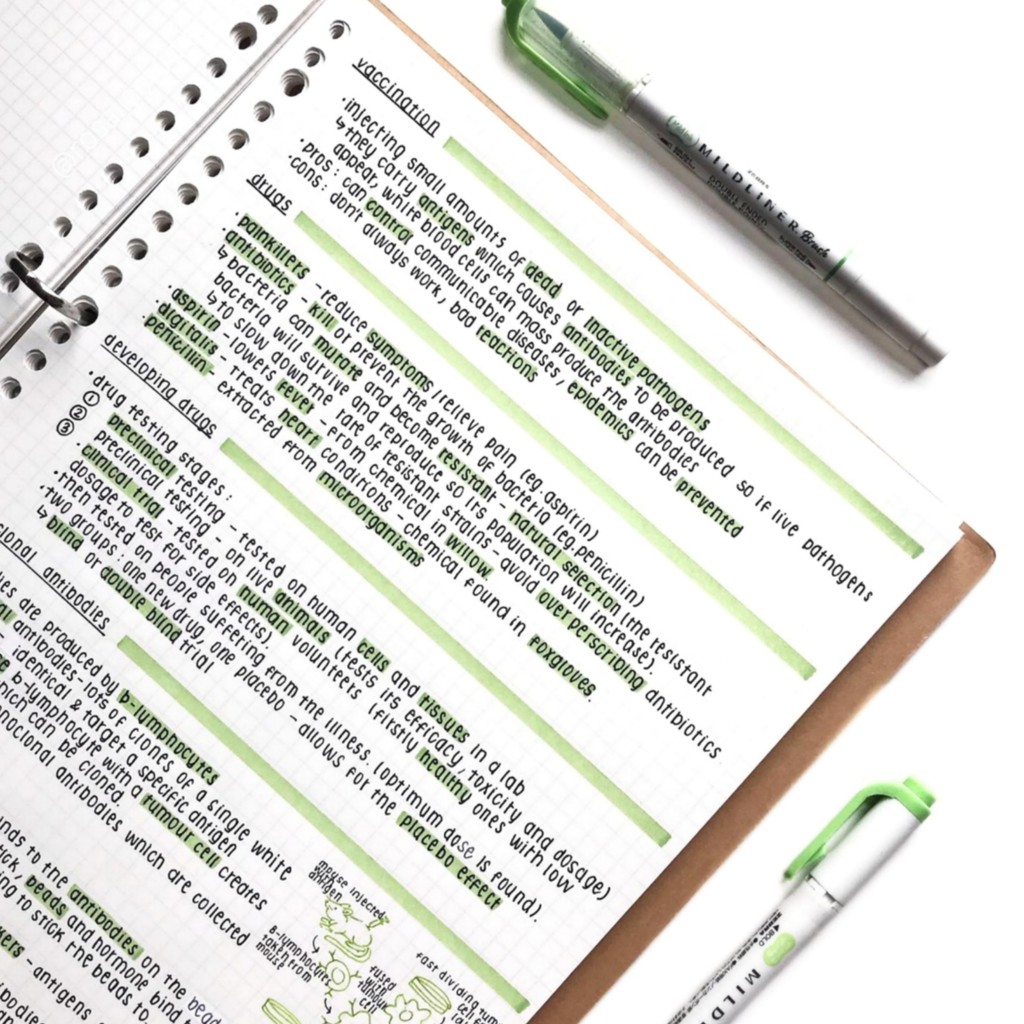 vaccination
·injecting small amounts of dead or inactive pathogens
↳they carry antigens which causes antibodies to be produced so if live pathogens
appear, white blood cells can mass produce the antibodies
·pros: can control communicable diseases, epidemics can be prevented
·cons: don't always work, bad reactions
drugs
·painkillers - reduce symptoms/relieve pain (eg. aspirin)
·antibiotics - kill or prevent the growth of bacteria (eg.penicillin)
↳bacteria can mutate and become resistant - natural selection (the resistant
bacteria will survive and reproduce so its population will increase).
↳to slow down the rate of resistant strains - avoid over perscribing antibiotics
·aspirin - lowers fever - from chemical in willow.
·digitalis - treats heart conditions - chemical found in foxgloves.
·penicillin - extracted from microorganisms
developing drugs
·drug testing stages:
① preclinical testing - tested on human cells and tissues in a lab
② preclinical testing - on live animals (tests its efficacy, toxicity and dosage)
③ clinical trial - tested on human volunteers (firstly healthy ones with low
dosage to test for side effects).
·then tested on people suffering from the illness. (optimum dose is found).
·two groups: one new drug, one placebo - allows for the placebo effect
↳blind or double blind trial
antibodies
are produced by b-lymphocytes
antibodies - lots of clones of a single white
- identical & target a specific antigen
b-lymphocyte with a tumour cell creates
which can be cloned.
antibodies which are collected
to the antibodies on the beads
beads and hormone bind t
to stick the beads to
- antigens
mouse injected
with
antigen
B-lymphocytes
taken from
mouse
fused
with
tumour
cell
fast dividing tumour
MILDLINER Brush
DOUBLE ENDED
BOLD
MILD